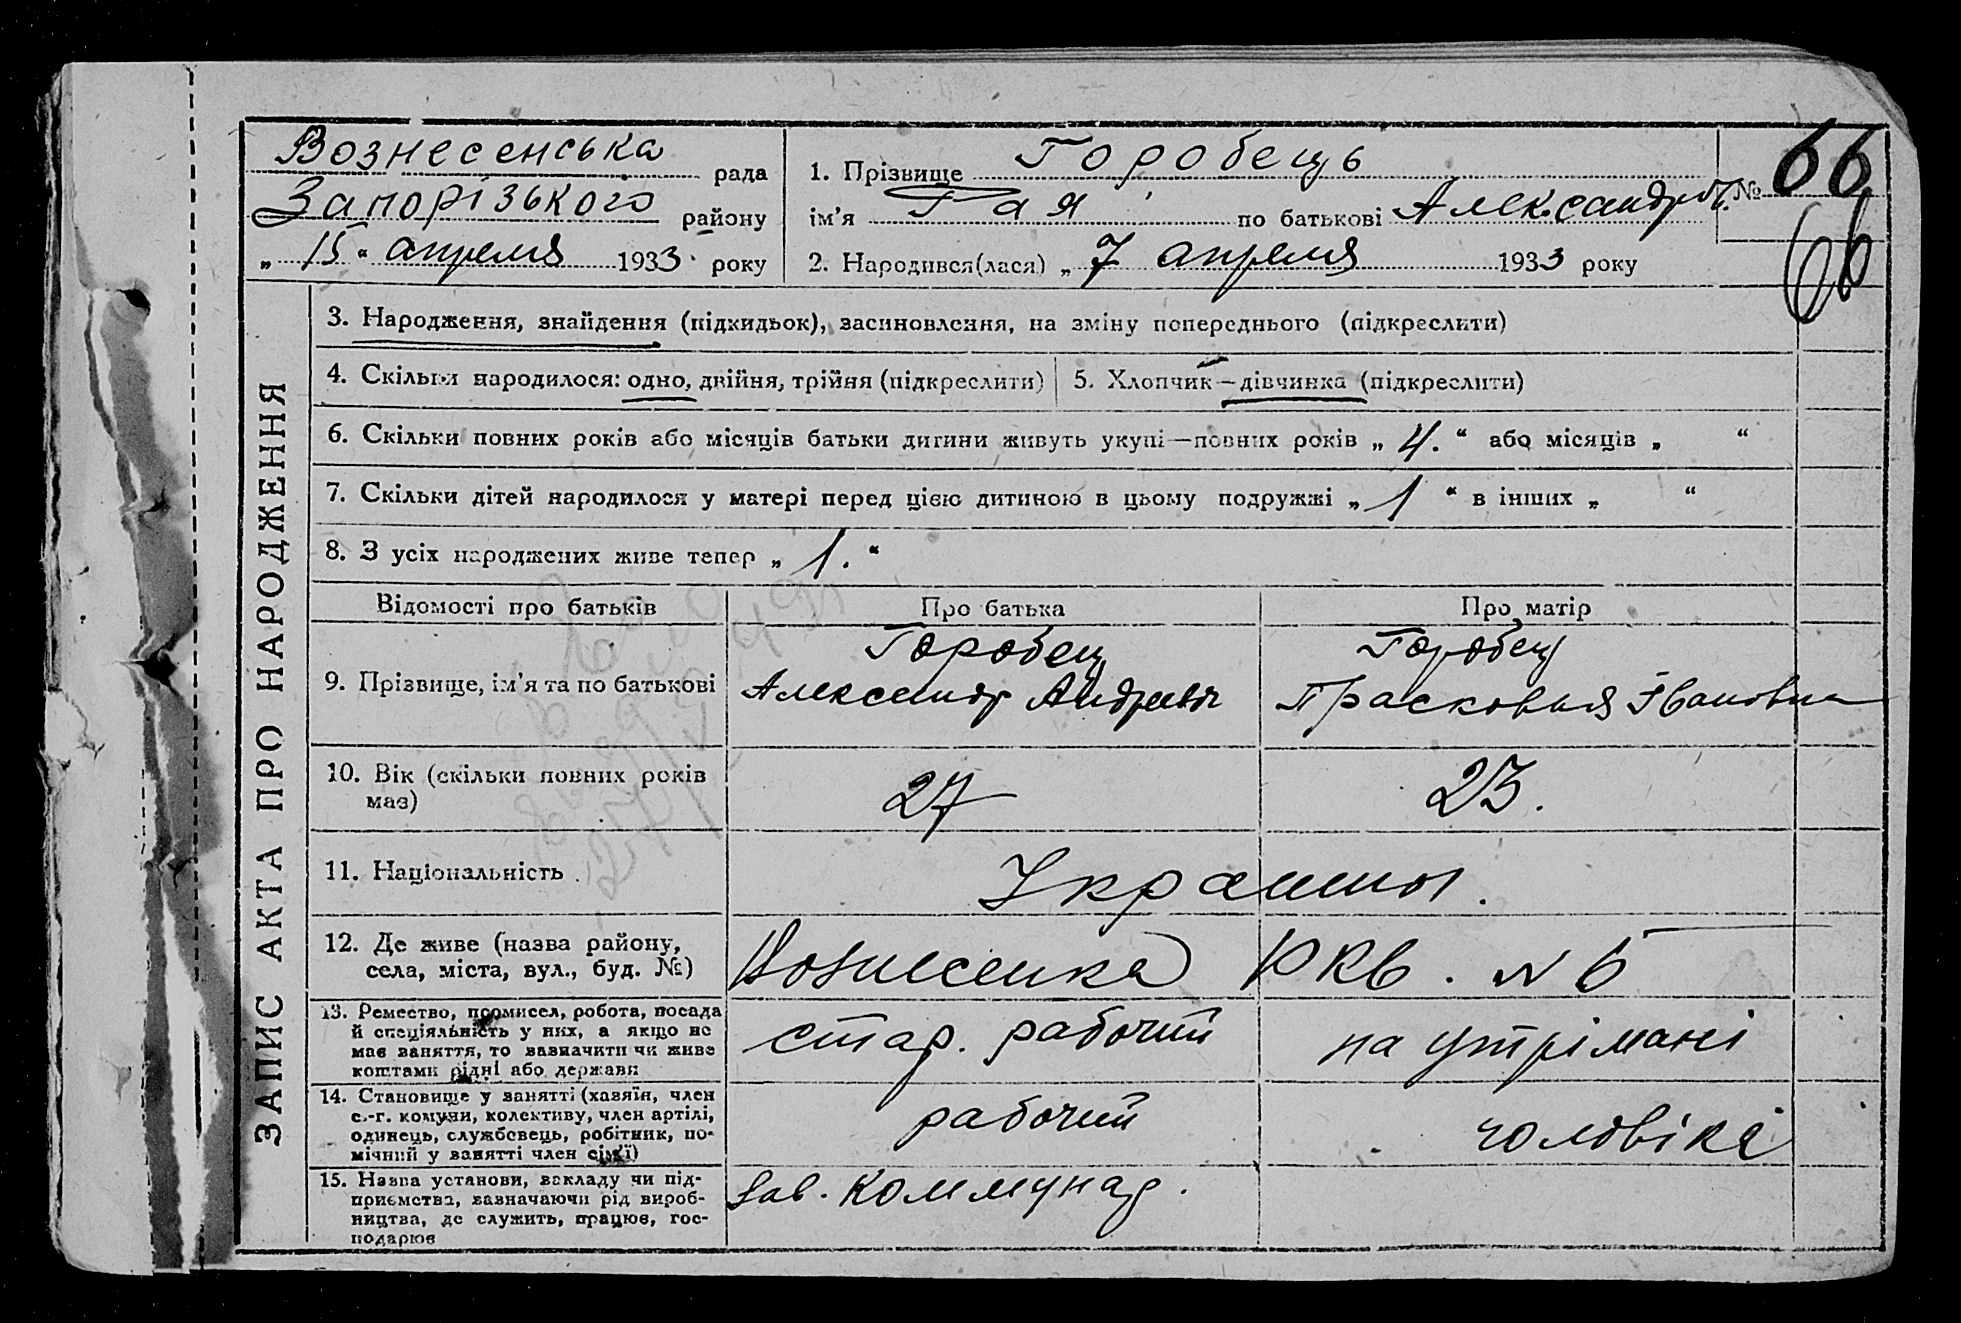 Вознесенська рада
Запорізького району
„ 15 “ апреля 1933 року
1. Прізвище Горобець
ім’я Рая по батькові Александр. №
66
2. Народився(лася) „ 7 апреля 1933 року
66
ЗАПИС АКТА ПРО НАРОДЖЕННЯ
3. Народження, знайдення (підкидьок), засиновлення, на зміну попереднього (підкреслити)
4. Скільки народилося: одно, двійня, трійня (підкреслити)
5. Хлопчик—дівчинка (підкреслити)
6. Скільки повних років або місяців батьки дитини живуть укупі—повних років „ 4. “ або місяців „ “
7. Скільки дітей народилося у матері перед цією дитиною в цьому подружжі „ 1 “ в інших „ “
8. З усіх народжених живе тепер „ 1. “
Відомості про батьків
Про батька
Про матір
9. Прізвище, ім’я та по батькові
Горобец
Александр Андреевич
Горобец
Прасковья Івановна
10. Вік (скільки повних років
має)
27
23.
11. Національність
Украинцы.
12. Де живе (назва району,
села, міста, вул., буд. №)
Вознесенка РКв. № 6
13. Ремество, промисел, робота, посада
й спеціяльність у них, а якщо не
має заняття, то зазначити чи живе
коштами рідні або держави
стар. рабочий
на утрімані
14. Становище у занятті (хазяїн, член
с.-г. комуни, колективу, член артілі,
одинець, службовець, робітник, по-
мічний у занятті член сім’ї)
рабочий
чоловіка
15. Назва установи, закладу чи під-
приємства, зазначаючи рід вироб-
ництва, де служить, працює, гос-
подарює
Зав. Коммунар.